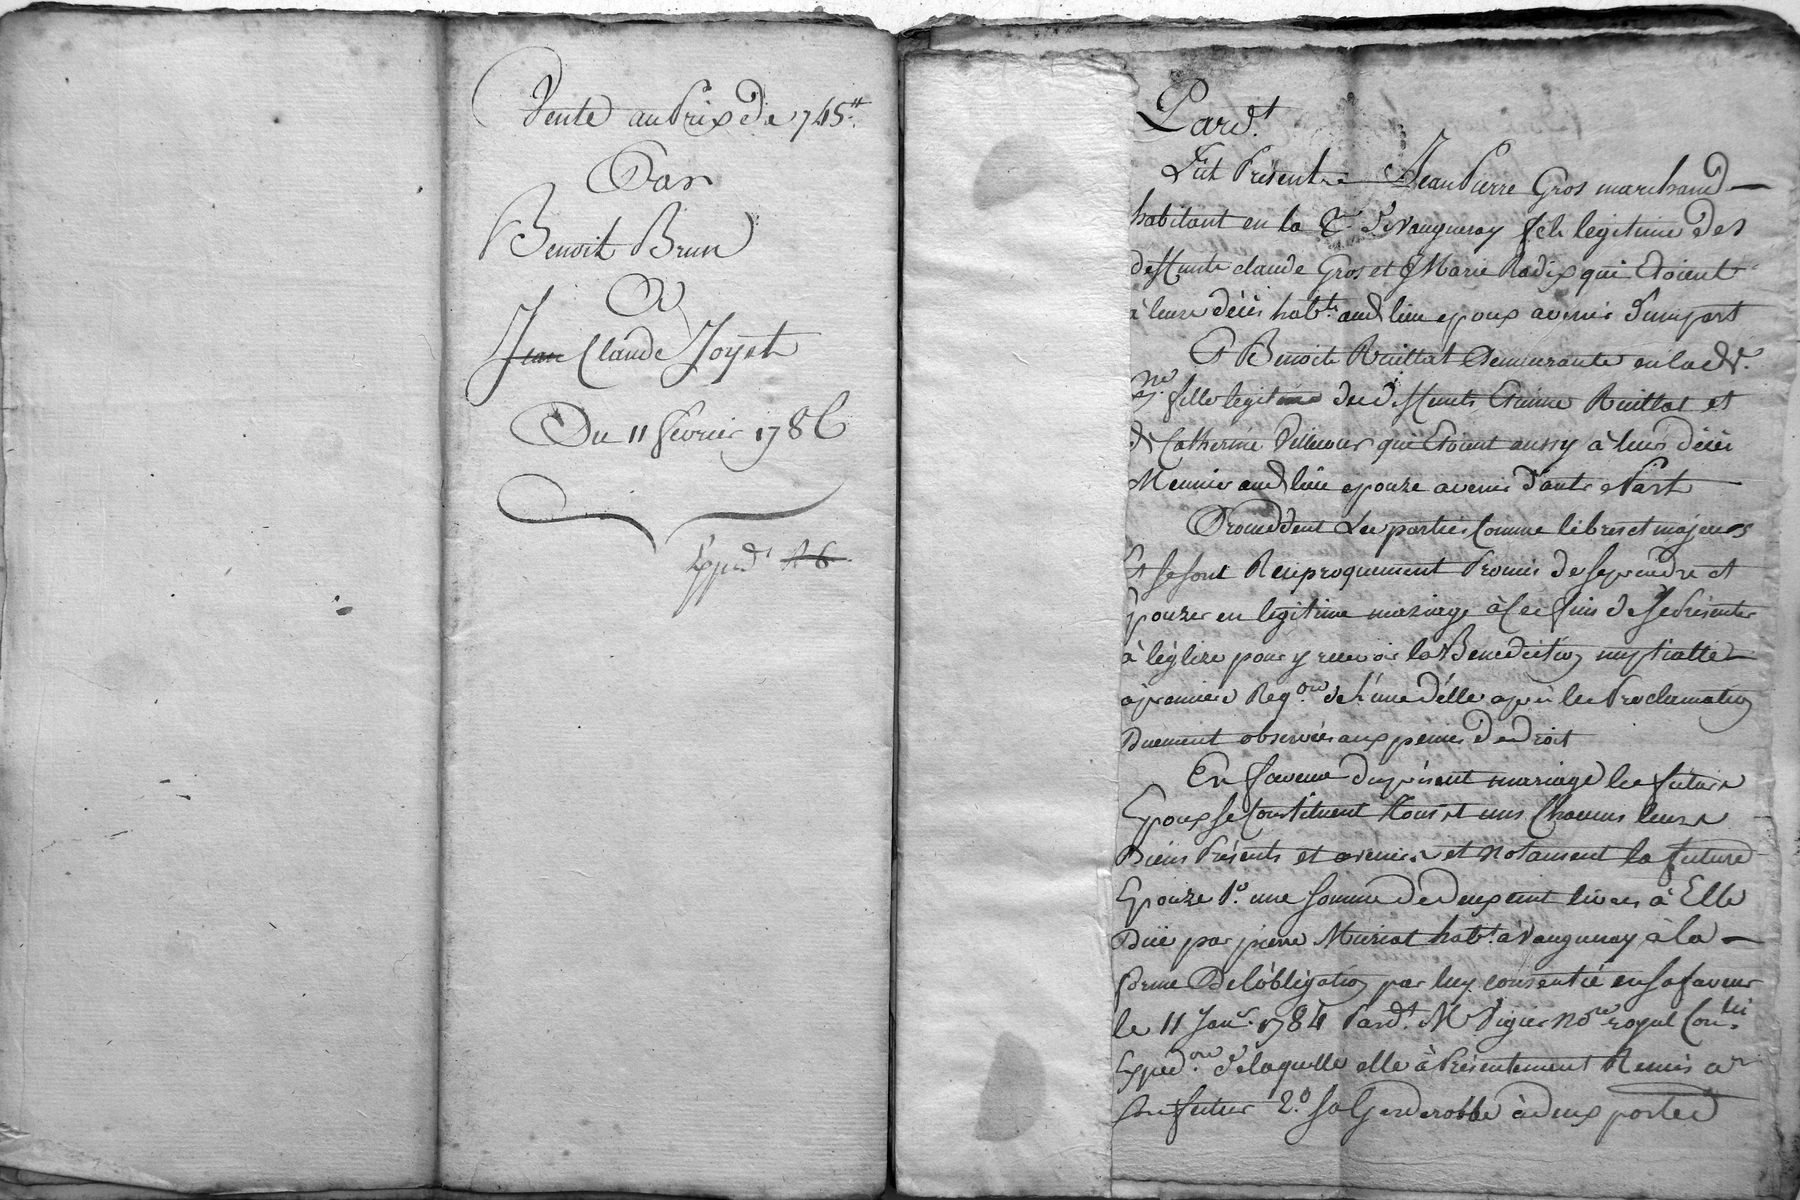 Vente au Prix de 745 ₶.
Par
Benoit Brun
A
Jean Claude Joyet
Du 11 fevrier 1786
Exped.
Pard.t
Fut Présent Jean Pierre Gros marchand
habitant en la de Vaugneray fils legitime des
deffunts claude Gros et Marie Radix qui Etoient
à leurs décès hab.ts aud lieu epoux avenir d'une part
Et Benoite Ruillat Demeurante en lad.
fille legitime des deffunts Etienne Ruillat et
de Catherine qui Etoient aussy à leurs décès
aud lieu epouze avenir d'autre Part
Procedent Les parties Comme libres et majeurs
Et se sont Reciproquement Promis de se prendre et
Epouzer en legitime mariage à Ces fins de se Présenter
à léglize pour y recevoir la Benediction nuptialle
à premiere Req.on de l'une d'elle après les Proclamations
Duement observées aux peines de droit
En faveur du présent mariage les futurs
Epoux se Constituent Tous et uns Chacuns leurs
Biens Présents et avenirs et notament la future
Epouze 1.o une somme de deux cent livres à Elle
Düe par pierre Muriat hab.t à Vaugneray à la
forme De lobligation par luy consentie en sa faveur
le 11 Jan.r 1784 Pard.t M.e Vigier No.re royal
Exped.on de laquelle elle à Présentement Remis a
son futur 2.o sa Garderobbe à deux portes